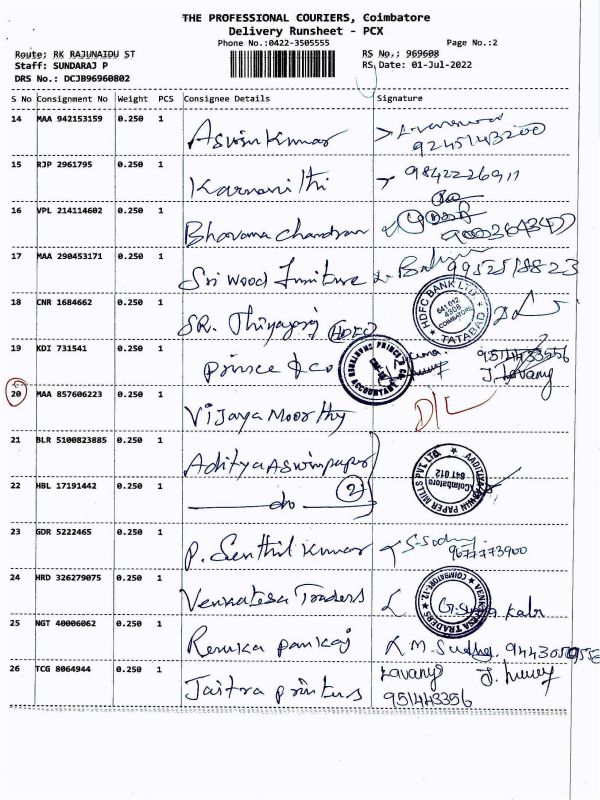 THE PROFESSIONAL COURIERS, Coimbatore
Delivery Runsheet - PCX
Phone No.:0422-3505555 Page No.:2
Route: RK RAJUNAIDU ST RS No.: 969608
Staff: SUNDARAJ P RS Date: 01-Jul-2022
DRS No.: DCJB96960802
S No Consignment No Weight PCS Consignee Details Signature
14 MAA 942153159 0.250 1 Asvin Kumar 9245143200
15 RJP 2961795 0.250 1 Karnanithi 9842226911
16 VPL 214114602 0.250 1 Bhavana Chandran
17 MAA 290453171 0.250 1 Sri Wood Furniture
18 CNR 1684662 0.250 1 SR. Thiyagaraj (HDFC) HDFC BANK LTD 641 012 4306 COIMBATORE TATABAD
19 KDI 731541 0.250 1 Prince & Co ACCOUNTANT
20 MAA 857606223 0.250 1 Vijaya Moorthy D/L
21 BLR 5100823885 0.250 1 Aditya Aswin paper AADITYA ASWIN PAPER MILLS PVT. LTD. Coimbatore 641 012
22 HBL 17191442 0.250 1 do (2)
23 GDR 5222465 0.250 1 P. Senthil Kumar 9677773900
24 HRD 326279075 0.250 1 Venkatesa Traders VENKATESA TRADERS COIMBATORE-12
25 NGT 40006062 0.250 1 Renuka pankaj M. Sudha
26 TCG 8064944 0.250 1 Jaitra printers Lavanya
951443356